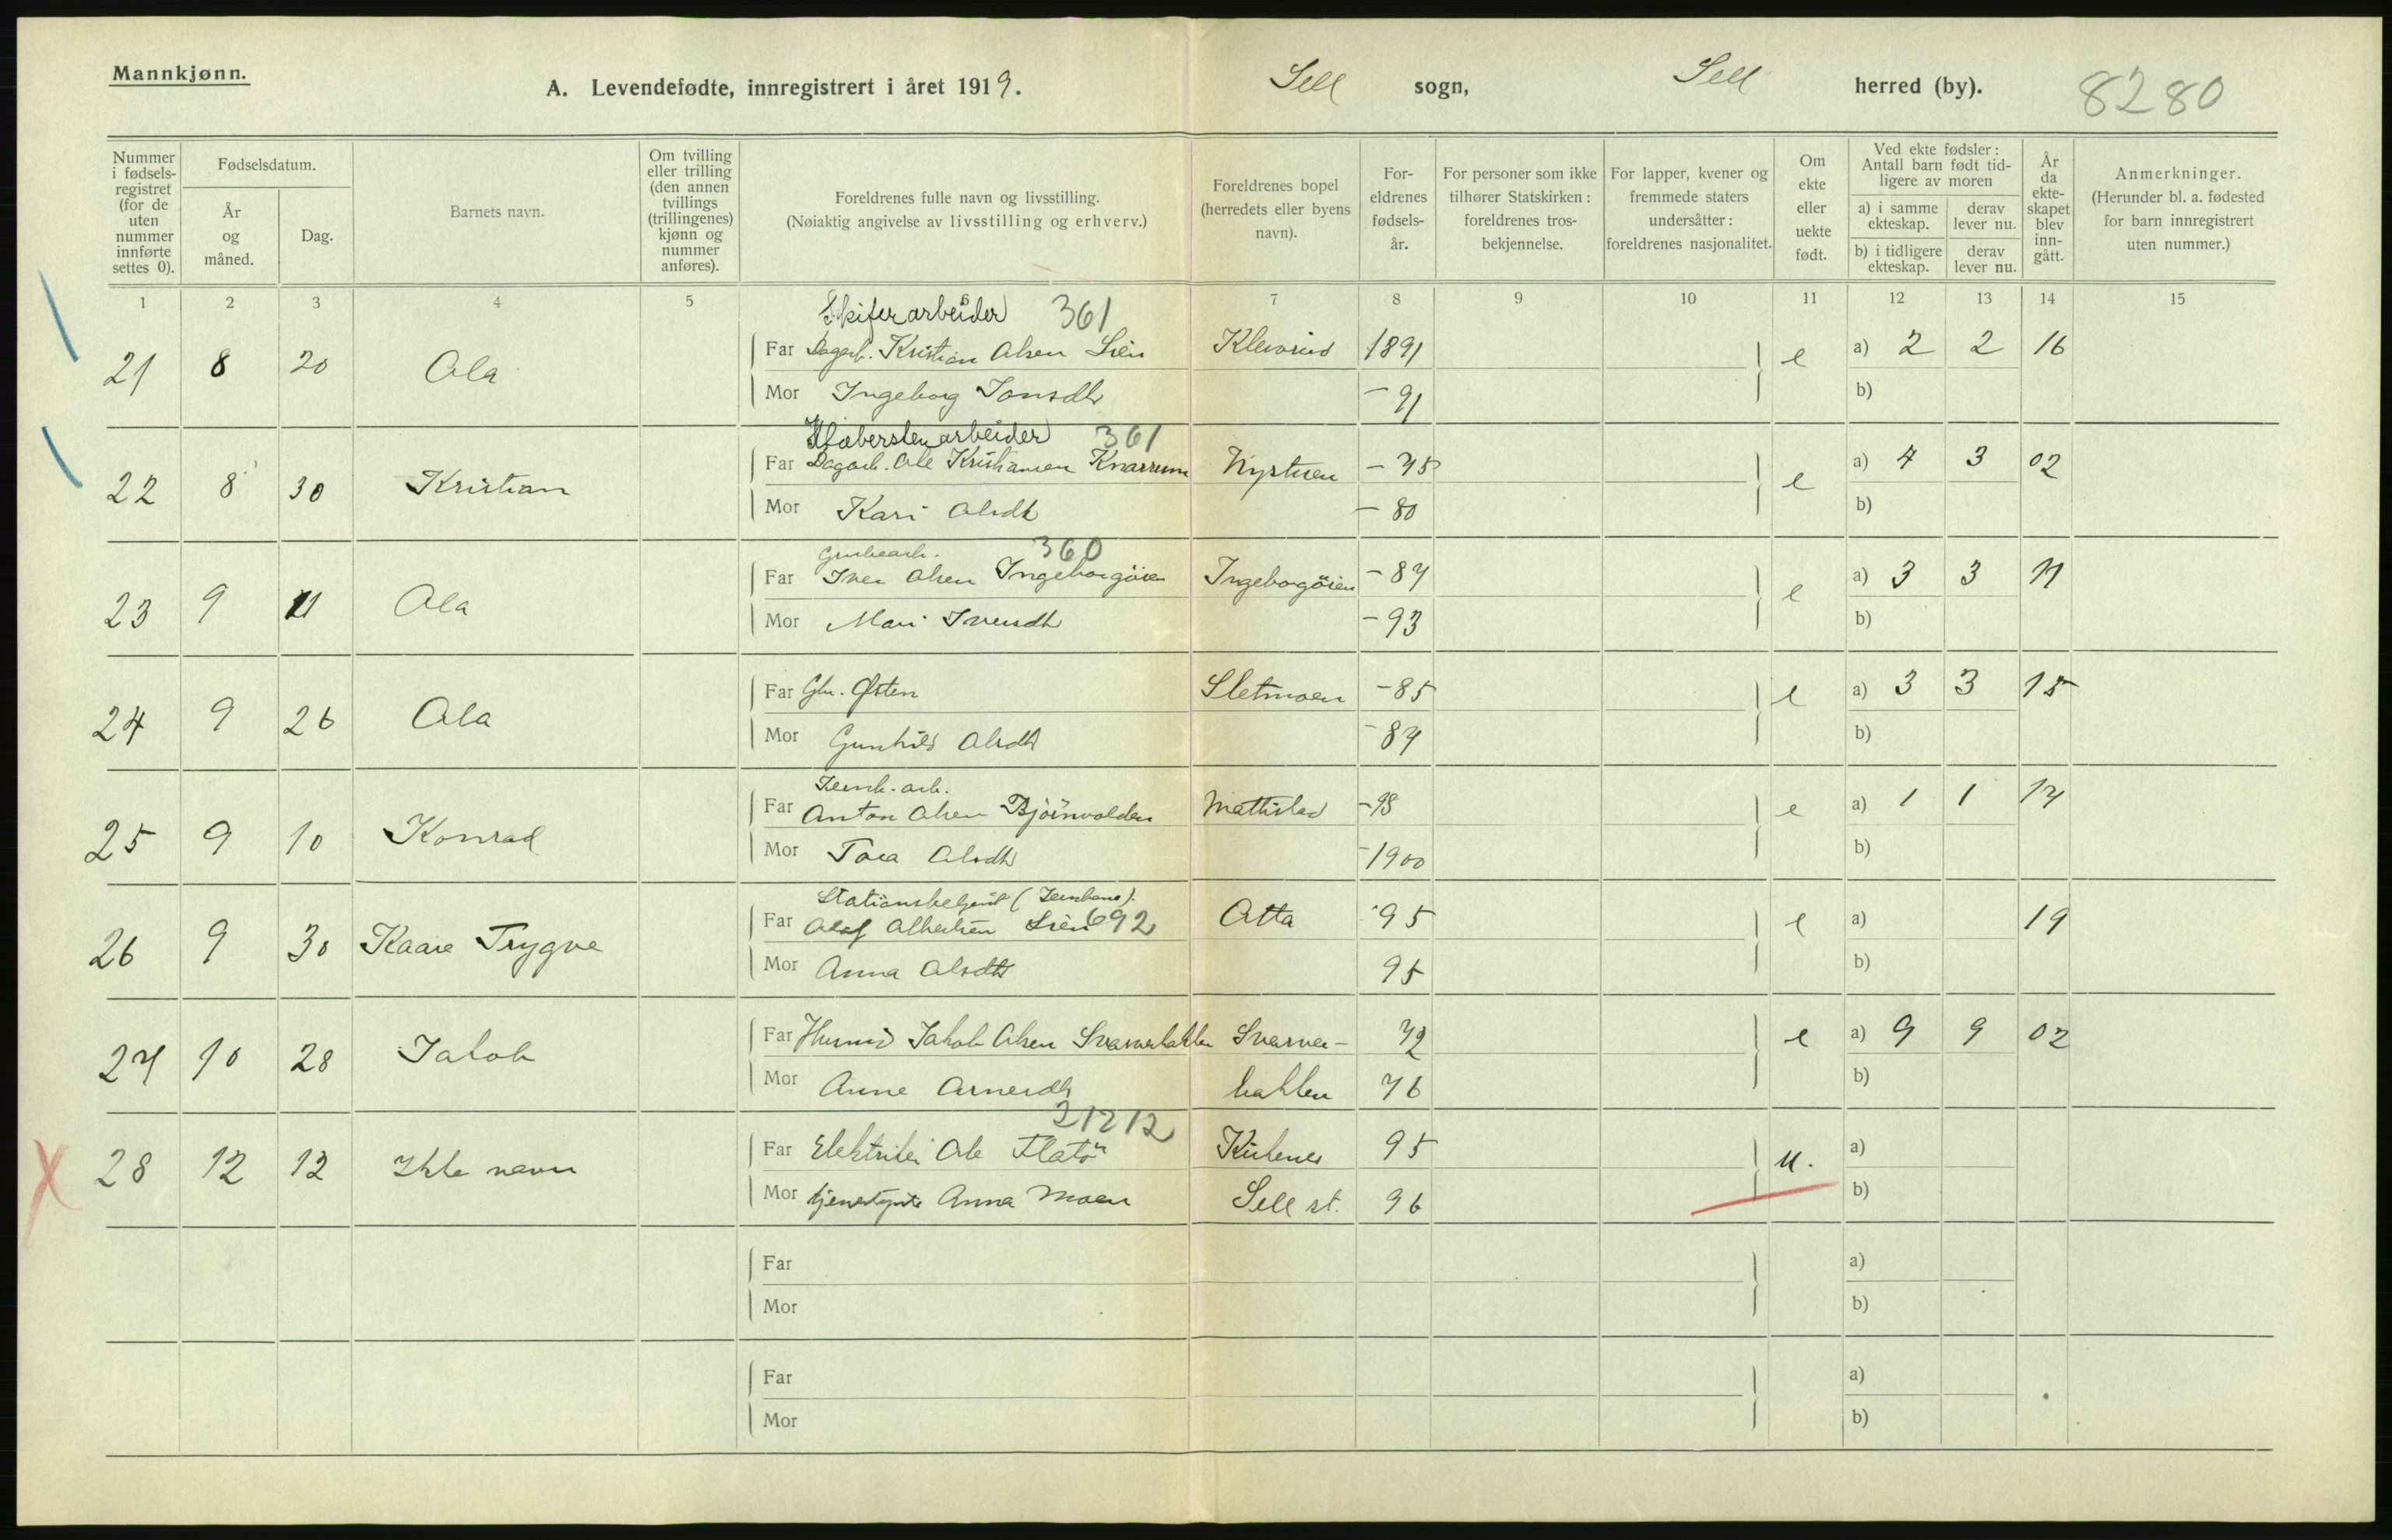 Mannkjønn.
A. Levendefødte, innregistrert i året 1919.
Sell sogn, Sell herred (by). 8280
Nummer i fødselsregistret (for de uten nummer innførte settes 0).
Fødselsdatum.
År og måned.
Dag.
Barnets navn.
Om tvilling eller trilling (den annen tvillings (trillingenes) kjønn og nummer anføres).
Foreldrenes fulle navn og livsstilling.
(Nøiaktig angivelse av livsstilling og erhverv.)
Foreldrenes bopel (herredets eller byens navn).
Foreldrenes fødselsår.
For personer som ikke tilhører Statskirken: foreldrenes trosbekjennelse.
For lapper, kvener og fremmede staters undersåtter: foreldrenes nasjonalitet.
Om ekte eller uekte født.
Ved ekte fødsler: Antall barn født tidligere av moren
a) i samme ekteskap. derav lever nu.
b) i tidligere ekteskap. derav lever nu.
År da ekteskapet blev inngått.
Anmerkninger.
(Herunder bl. a. fødested for barn innregistrert uten nummer.)
1 2 3 4 5 6 7 8 9 10 11 12 13 14 15
Skiferarbeider 361
21 8 20 Ola Far Dagarb. Kristian Olsen Lien 1891 e a) 2 2 16
Mor Ingeborg Jonsdtr – 91 b)
Klæberstenarbeider 361
22 8 30 Kristian Far Dagarb. Ole Kristiansen Nystuen – 75 e a) 4 3 02
Mor Kari Olsdtr – 80 b)
Grubearb. 360
23 9 11 Ola Far Iver Olsen Ingeborgöien Ingeborgöien – 87 e a) 3 3 11
Mor Mari Iversdtr – 93 b)
24 9 26 Ola Far Gbr. Østen Sletmoen – 85 e a) 3 3 15
Mor Gunhild Olsdtr – 87 b)
Jernb. arb.
25 9 10 Konrad Far Anton Olsen Björnvolden – 98 e a) 1 1 17
Mor Tora Olsdtr – 1900 b)
Stationsbetjent (Jernbane).
26 9 30 Kaare Trygve Far Olaf Albertsen Lien 692 Otta 95 e a) 19
Mor Anna Olsdtr 95 b)
27 10 28 Jakob Far Husmd Jakob Olsen Svarverbakken Svarver- 72 e a) 9 9 02
Mor Anne Arnesdtr bakken 76 b)
21212
28 12 12 Ikke navn Far Elektriker Ole Flatö Kirkenes 95 u. a)
Mor tjenestepike Anna Moen Sell st. 96 b)
Far a)
Mor b)
Far a)
Mor b)